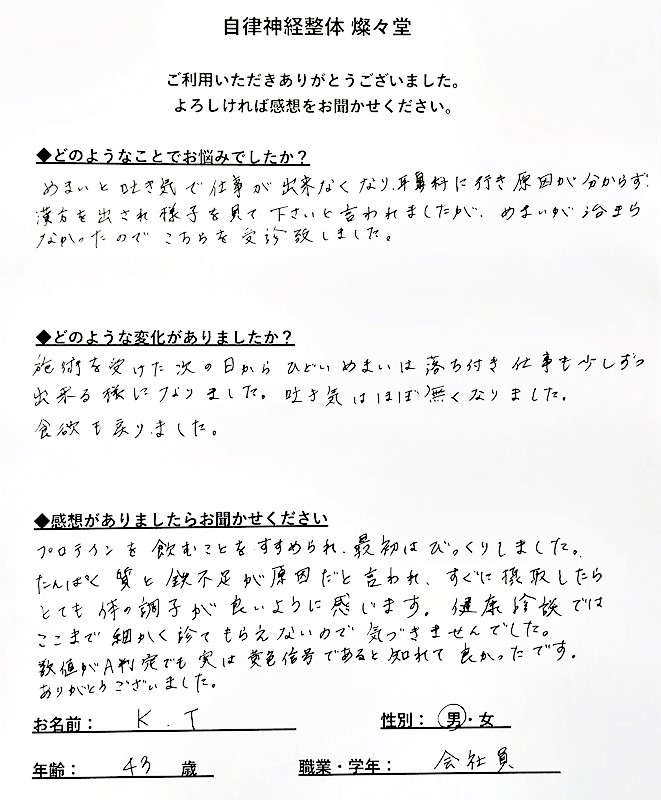 自律神経整体 燦々堂
ご利用いただきありがとうございました。
よろしければ感想をお聞かせください。
◆どのようなことでお悩みでしたか？
めまいと吐き気で仕事が出来なくなり、耳鼻科に行き原因が分からず、
漢方を出され様子を見て下さいと言われましたが、めまいが治まら
なかったのでこちらを受診致しました。
◆どのような変化がありましたか？
施術を受けた次の日からひどいめまいは落ち付き仕事も少しずつ
出来る様になりました。吐き気はほぼ無くなりました。
食欲も戻りました。
◆感想がありましたらお聞かせください
プロテインを飲むことをすすめられ、最初はびっくりしました。
たんぱく質と鉄不足が原因だと言われ、すぐに摂取したら
とても体の調子が良いように感じます。健康診談では
ここまで細かく診てもらえないので気づきませんでした。
数値がA判定でも実は黄色信号であると知れて良かったです。
ありがとうございました。
お名前： K.T 性別： 男・女
年齢： 43 歳 職業・学年： 会社員